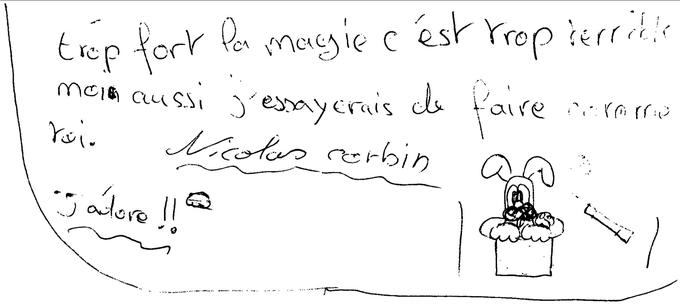 trop fort la magie c'est trop terrible
moi aussi j'essayerais de faire comme
toi.
Nicolas corbin
J'adore !!